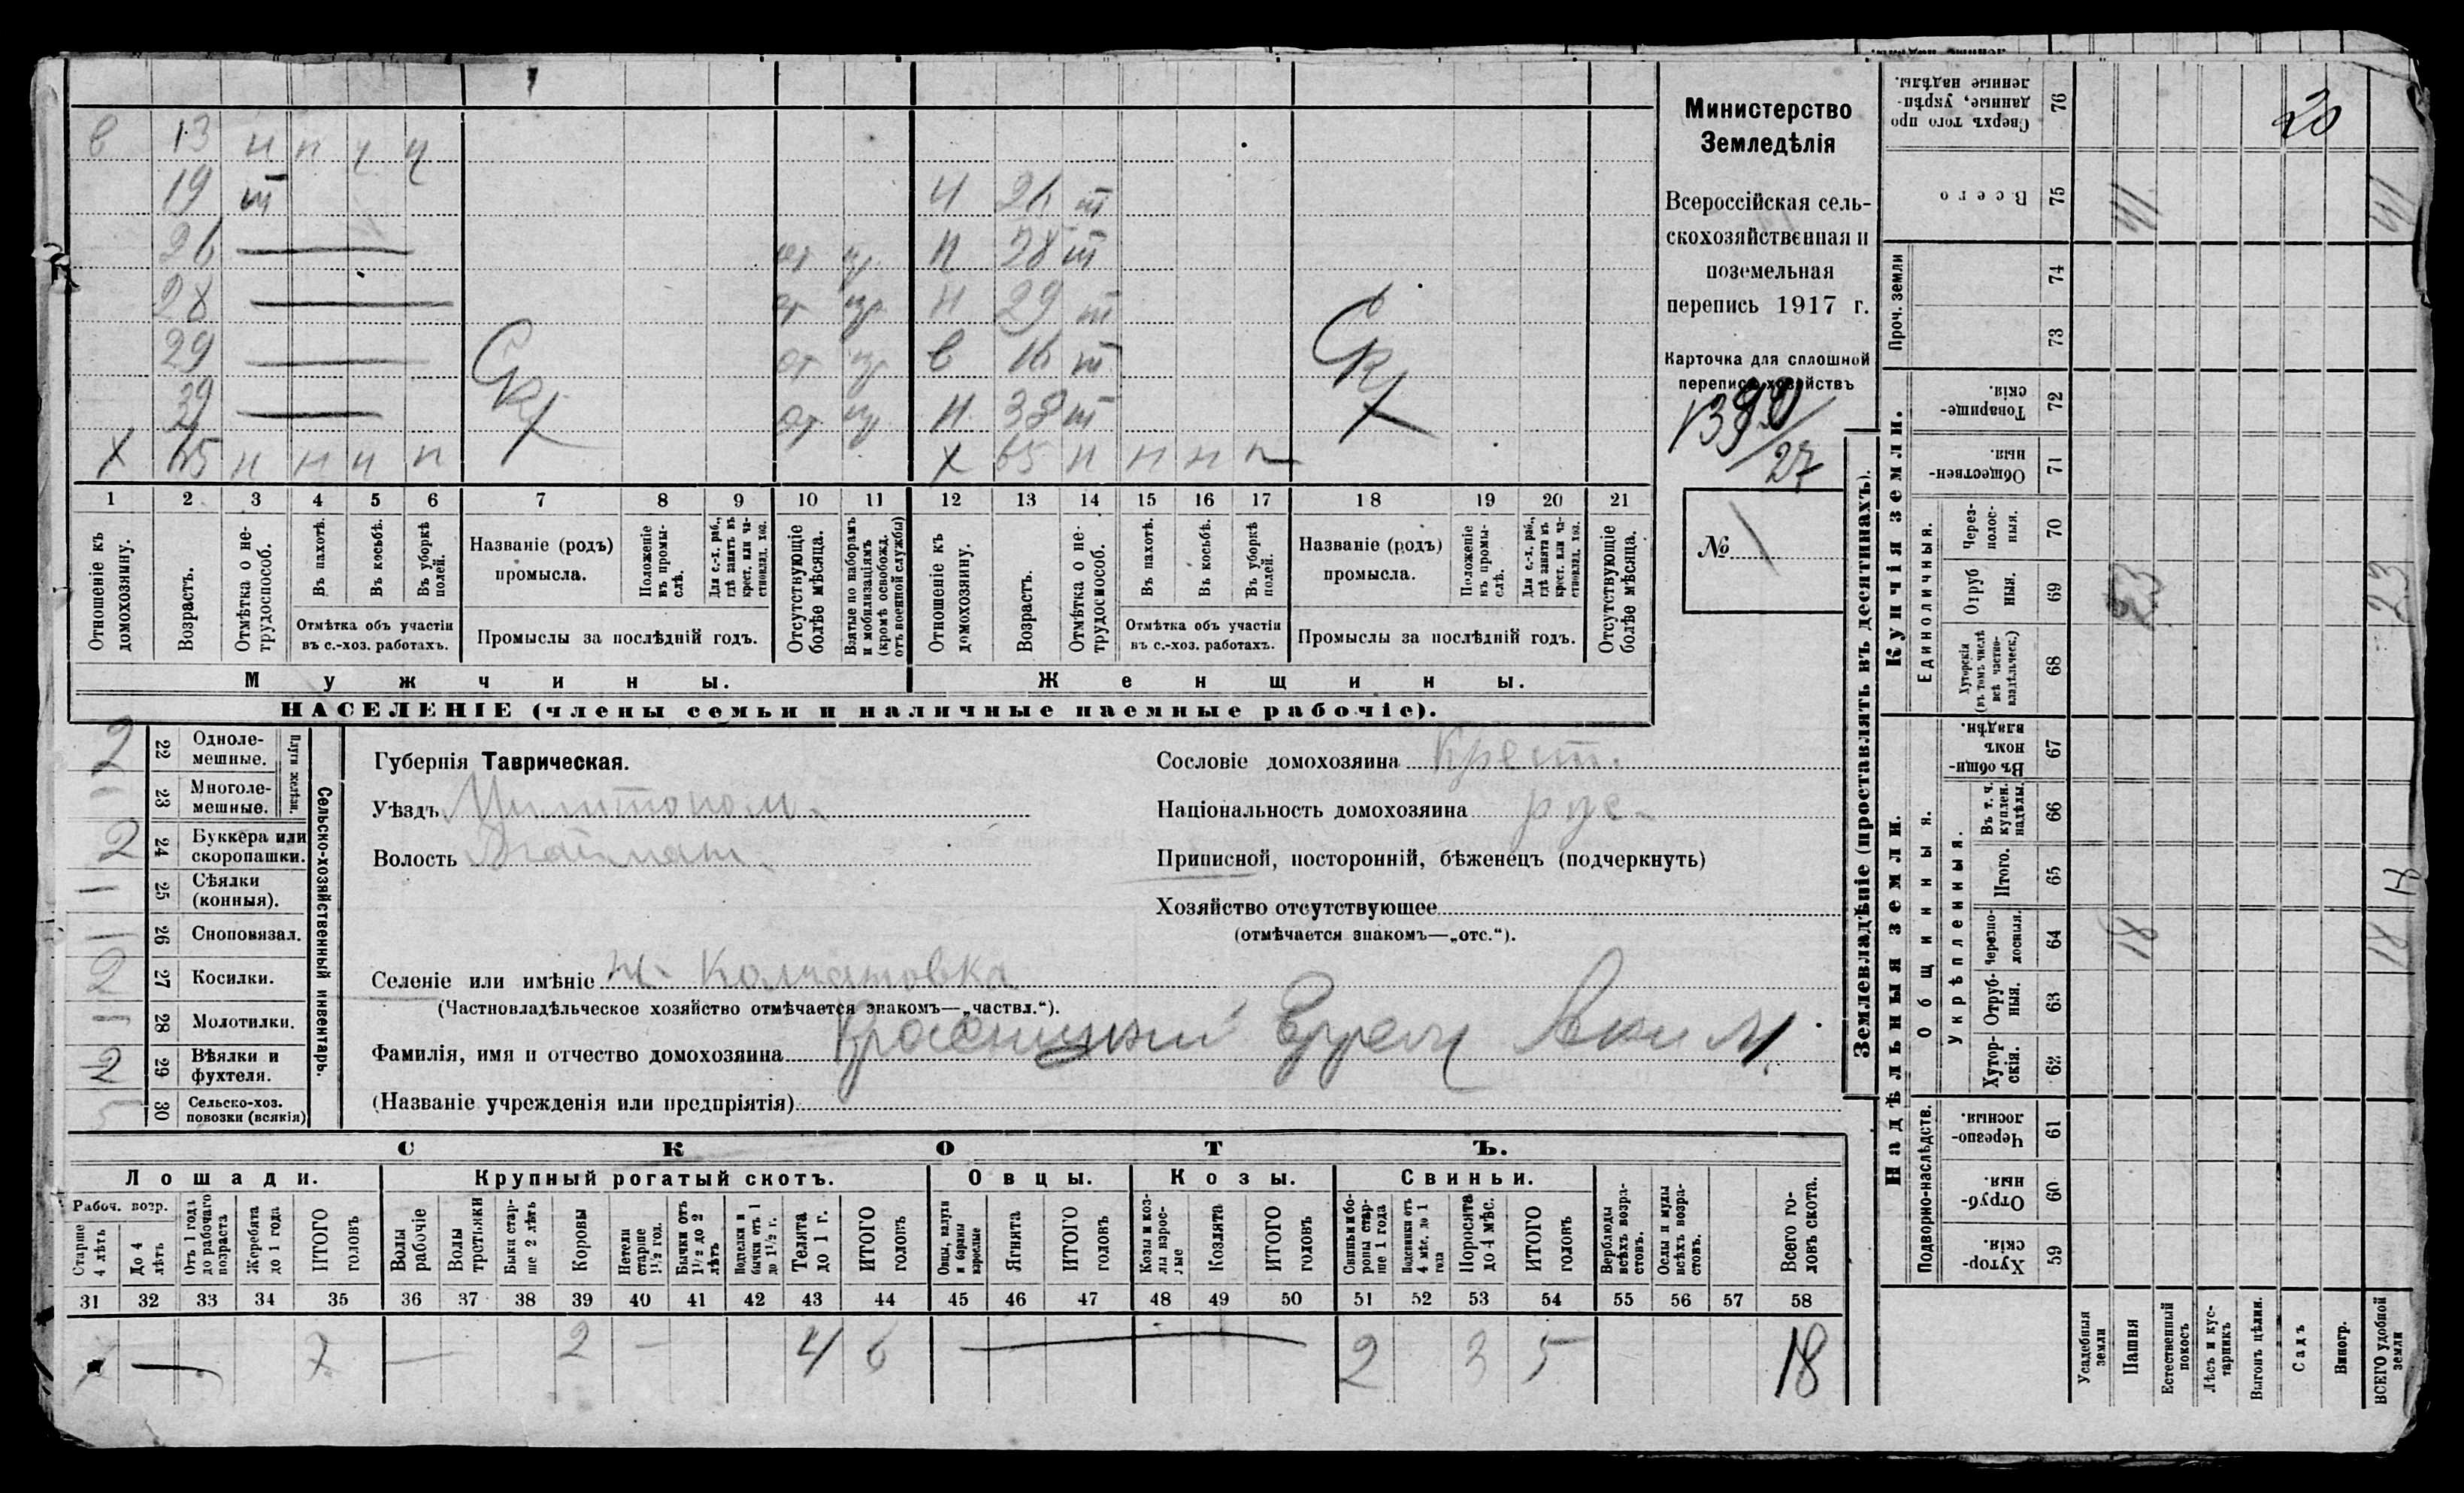 в 13 н н ч ч
19 т Н 26 т
26 от вз Н 28 т
28 от вз Н 29 т
29 от вз в 16 т
39 от вз Н 38 т
Х 65 н н н н Х 65 н н н н
1 2 3 4 5 6 7 8 9 10 11 12 13 14 15 16 17 18 19 20 21
Отношеніе къ домохозяину.
Возрастъ.
Отмѣтка о нетрудоспособ.
Въ пахотѣ.
Въ косьбѣ.
Въ уборкѣ полей.
Отмѣтка объ участіи въ с.-хоз. работахъ.
Названіе (родъ) промысла.
Положеніе въ промыслѣ.
Для с.-х. раб., гдѣ занятъ въ крест. или частновлад. хоз.
Промыслы за послѣдній годъ.
Отсутствующіе болѣе мѣсяца.
Взятые по наборамъ и мобилизаціямъ (кромѣ освобожд. отъ военной службы)
Отношеніе къ домохозяину.
Возрастъ.
Отмѣтка о нетрудоспособ.
Въ пахотѣ.
Въ косьбѣ.
Въ уборкѣ полей.
Отмѣтка объ участіи въ с.-хоз. работахъ.
Названіе (родъ) промысла.
Положеніе въ промыслѣ.
Для с.-х. раб., гдѣ занята въ крест. или частновлад. хоз.
Промыслы за послѣдній годъ.
Отсутствующіе болѣе мѣсяца.
Мужчины. Женщины.
НАСЕЛЕНІЕ (члены семьи и наличные наемные рабочіе).
Министерство
Земледѣлія
Всероссійская сель-
скохозяйственная и
поземельная
перепись 1917 г.
Карточка для сплошной
переписи хозяйствъ
1390/27
№
Сельско-хозяйственный инвентарь.
Плуги желѣзн.
2 22 Одноле-
мешные.
23 Многоле-
мешные.
2 24 Буккера или
скоропашки.
1 25 Сѣялки
(конныя).
1 26 Сноповязал.
2 27 Косилки.
1 28 Молотилки.
2 29 Вѣялки и
фухтеля.
5 30 Сельско-хоз.
повозки (всякія)
Губернія Таврическая.
Уѣздъ Милитопол.
Волость
Сословіе домохозяина Крест.
Національность домохозяина рус.
Приписной, посторонній, бѣженецъ (подчеркнуть)
Хозяйство отсутствующее
(отмѣчается знакомъ—„отс.“).
Селеніе или имѣніе
(Частновладѣльческое хозяйство отмѣчается знакомъ—„частвл.“).
Фамилія, имя и отчество домохозяина Красницкий Ефрем Аким.
(Названіе учрежденія или предпріятія)
СКОТЪ.
Лошади. Крупный рогатый скотъ. Овцы. Козы. Свиньи.
Рабоч. возр.
Старше 4 лѣтъ
До 4 лѣтъ
Отъ 1 годъ до рабочаго возраста
Жеребята до 1 года
ИТОГО головъ
Волы рабочіе
Волы третьяки
Быки старше 2 лѣтъ
Коровы
Нетели старше 1½ год.
Бычки отъ 1½ до 2 лѣтъ
Подтелки и бычки отъ 1 до 1½ г.
Телята до 1 г.
ИТОГО головъ
Овцы, валухи и бараны взрослые
Ягнята
ИТОГО головъ
Козы и козлы взрослые
Козлята
ИТОГО головъ
Свиньи и бороны старше 1 года
Подсвинки отъ 4 мѣс. до 1 года
Поросята до 4 мѣс.
ИТОГО головъ
Верблюды всѣхъ возрастовъ.
Ослы и мулы всѣхъ возрастовъ.
Всего головъ скота.
31 32 33 34 35 36 37 38 39 40 41 42 43 44 45 46 47 48 49 50 51 52 53 54 55 56 57 58
7 — 7 — 2 — 4 6 — 2 3 5 18
Землевладѣніе (проставлять въ десятинахъ).
Купчія земли.
Надѣльныя земли.
Сверхъ того про данные, укрѣпленные надѣлы. 76 20
Всего 75 41 41
Проч. земли 74
73
Товарищескія. 72
Общественныя. 71
Единоличныя.
Черезполосныя. 70
Отрубныя. 69 23 23
Хуторскія (въ томъ числѣ всѣ частновладѣльческ.) 68
Общинныя.
Въ общинномъ владѣн. 67
Укрѣпленныя.
Въ т. ч. куплен. надѣлы. 66
Итого. 65
Черезполосныя. 64 18 18
Отрубныя. 63
Хуторскія. 62
Подворно-наслѣдств.
Черезполосныя. 61
Отрубныя. 60
Хуторскія. 59
Усадебныя земли
Пашня
Естественный покосъ
Лѣсъ и кустарникъ
Выгонъ цѣлин.
Садъ
Виногр.
ВСЕГО удобной земли